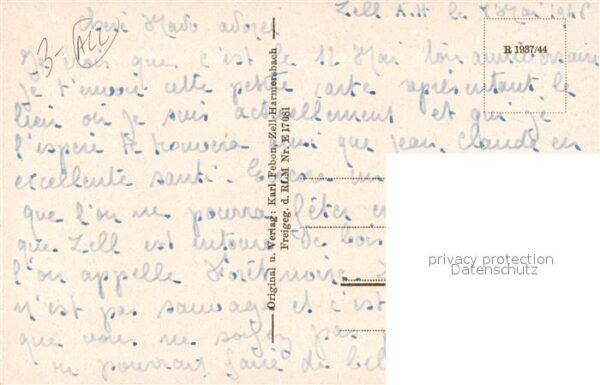 Zell A.H le 7 Mai 1946
3- ALL
R 1937/44
Mado adorée
Je crois que c'est le 12 Mai ton anniversaire
je t'envoie cette petite carte représentant le
lieu où je suis actuellement et qui je
l'espère te trouvera ainsi que Jean Claude en
excellente santé. Encore un
que l'on ne pourra fêter en
que Zell est entouré de bois
l'on appelle Forêt noire.
n'est pas sauvage et c'est
que vous ne soyez pas
on pourrait faire de bel
Original u. Verlag: Karl Febon, Zell-Harmersbach
Freigeg. d. RLM Nr. E 17081
privacy protection
Datenschutz